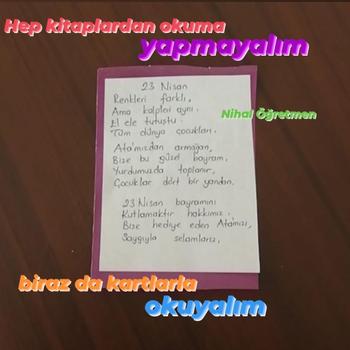 Hep kitaplardan okuma
yapmayalım
Nihal Öğretmen
23 Nisan
Renkleri farklı,
Ama kalpleri aynı.
El ele tutuştu
Tüm dünya çocukları.
Ata'mızdan armağan,
Bize bu güzel bayram,
Yurdumuzda toplanır,
Çocuklar dört bir yandan.
23 Nisan bayramını
Kutlamaktır hakkımız.
Bize hediye eden Ata'mızı,
Saygıyla selamlarız.
biraz da kartlarla
okuyalım